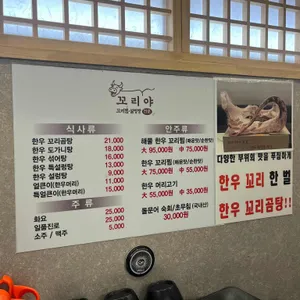 꼬리야
식사류
한우 꼬리곰탕 21,000
한우 도가니탕 20,000
한우 섞어탕 16,000
한우 특설렁탕 13,000
한우 설렁탕 11,000
얼큰이(한우머리) 12,000
특얼큰이(한우머리) 15,000
주류
화요 25,000
일품진로 25,000
소주 / 맥주 5,000
안주류
해물 한우 꼬리찜 (매운맛/순한맛)
大 95,000원 中 75,000원
한우 꼬리찜 (매운맛/순한맛)
大 75,000원 中 55,000원
한우 머리고기
大 55,000원 中 35,000원
돌문어 숙회/초무침 (국내산)
30,000원
다양한 부위의 맛을 푸짐하게
한우 꼬리 한 벌
한우 꼬리곰탕!!